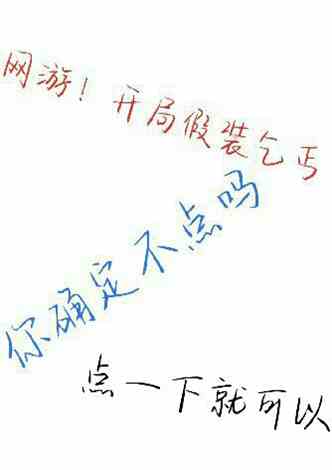 网游！开局假装乞丐
你确定不点吗
点一下就可以